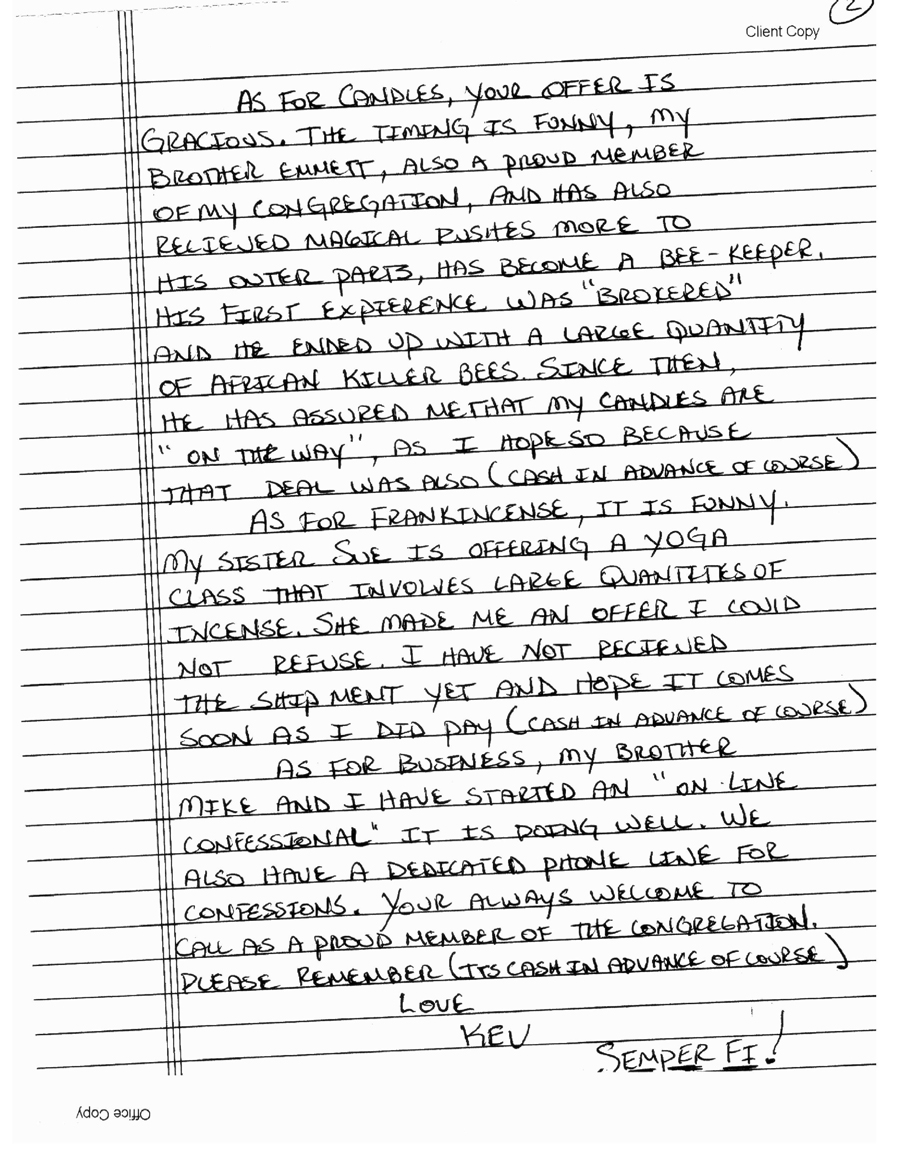 2
Client Copy
AS FOR CANDLES, YOUR OFFER IS
GRACIOUS. THE TIMING IS FUNNY, MY
BROTHER EMMETT, ALSO A PROUD MEMBER
OF MY CONGREGATION, AND HAS ALSO
RECIEVED MAGICAL PUSHES MORE TO
HIS OUTER PARTS, HAS BECOME A BEE-KEEPER.
HIS FIRST EXPIERENCE WAS "BROKERED"
AND HE ENDED UP WITH A LARGE QUANTITY
OF AFRICAN KILLER BEES. SINCE THEN,
HE HAS ASSURED ME THAT MY CANDLES ARE
"ON THE WAY", AS I HOPE SO BECAUSE
THAT DEAL WAS ALSO (CASH IN ADVANCE OF COURSE)
AS FOR FRANKINCENSE, IT IS FUNNY.
MY SISTER SUE IS OFFERING A YOGA
CLASS THAT INVOLVES LARGE QUANTITIES OF
INCENSE. SHE MADE ME AN OFFER I COULD
NOT REFUSE. I HAVE NOT RECIEVED
THE SHIPMENT YET AND HOPE IT COMES
SOON AS I DID PAY (CASH IN ADVANCE OF COURSE)
AS FOR BUSINESS, MY BROTHER
MIKE AND I HAVE STARTED AN "ON-LINE
CONFESSIONAL" IT IS DOING WELL. WE
ALSO HAVE A DEDICATED PHONE LINE FOR
CONFESSIONS. YOUR ALWAYS WELCOME TO
CALL AS A PROUD MEMBER OF THE CONGREGATION.
PLEASE REMEMBER (ITS CASH IN ADVANCE OF COURSE)
LOVE
KEV
SEMPER FI!
Office Copy